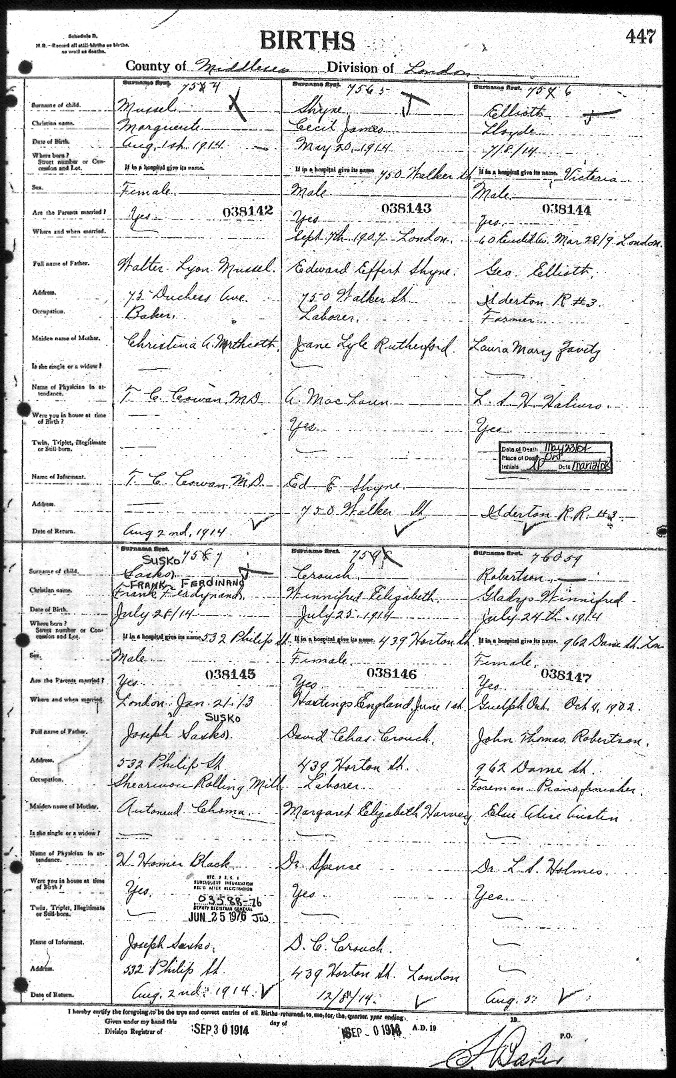 Schedule B.
N.B.—Record all still-births as births, as well as deaths.
BIRTHS
447
County of Middlesex Division of London
Surname first. Surname first. Surname first.
7565
Surname of child. Mussel Shyne Elliott
Christian name. Marguerite Cecil James Lloyde
Date of Birth. Aug 1st 1914 May 20, 1914 7/8/14
Where born?
Street number or Concession and Lot. If in a hospital give its name. If in a hospital give its name. 750 Walker St If in a hospital give its name. Victoria
Sex. Female Male Male
Are the Parents married? Yes 038142 Yes 038143 Yes. 038144
Where and when married. Sept 7th 1907 London. Mar 28/9 London
Full name of Father. Walter Lyon Mussel. Edward Effert Shyne. Geo. Elliott
Address. 75 Duchess Ave. 750 Walker St Ilderton R #3
Occupation. Baker. Laborer. Farmer
Maiden name of Mother. Christina A. Jane Lyle Rutherford. Laura Mary Zavitz
Is she single or a widow?
Name of Physician in attendance. T. C. Cowan M.D. A. MacLaren L. S. H.
Were you in house at time of Birth? Yes Yes
Twin, Triplet, Illegitimate or Still-born.
Date of Death
Place of Death Ont
Initials Date
Name of Informant. T. C. Cowan M.D. Ed. E Shyne
Address. 750 Walker St Ilderton R.R. #3
Date of Return. Aug 2nd, 1914
Surname first. Surname first. Surname first.
SUSKO
Surname of child. Sasko Crouch Robertson
FRANK FERDINAND
Christian name. Frank Ferdynand Winnifred Elizabeth Gladys Winnifred
Date of Birth. July 28/14 July 25, 1914 July 24th 1914
Where born?
Street number or Concession and Lot. If in a hospital give its name 532 Philip St. If in a hospital give its name. 439 Horton St. If in a hospital give its name. 962 Dame St. Lon
Sex. Male Female. Female.
Are the Parents married? Yes 038145 Yes 038146 Yes 038147
Where and when married. London Jan. 21.13 Hastings England June 1st. Guelph Ont. Oct 4, 1902.
SUSKO
Full name of Father. Joseph Sasko. David Chas. Crouch. John Thomas Robertson.
Address. 532 Philip St 439 Horton St. 962 Dame St.
Occupation. Rolling Mill Laborer Foreman Piano finisher
Maiden name of Mother. Choma Margaret Elizabeth Harvey Elsie Alice Austin
Is she single or a widow?
Name of Physician in attendance. H Homer Black Dr. Spence Dr. L. S. Holmes
Were you in house at time of Birth? Yes. Yes Yes.
03588-76
DEPUTY REGISTRAR GENERAL
Twin, Triplet, Illegitimate or Still-born. JUN 25 1976 JW
Name of Informant. Joseph Sasko. D. C. Crouch.
Address. 532 Philip St. 439 Horton St. London
Date of Return. Aug. 2nd 1914 12/8/14. Aug. 5
I hereby certify the foregoing to be the true and correct entries of all Births returned to me, for the quarter year ending 19
Given under my hand this SEP 30 1914 day of SEP 30 1914 A.D. 19
Division Registrar of P.O.